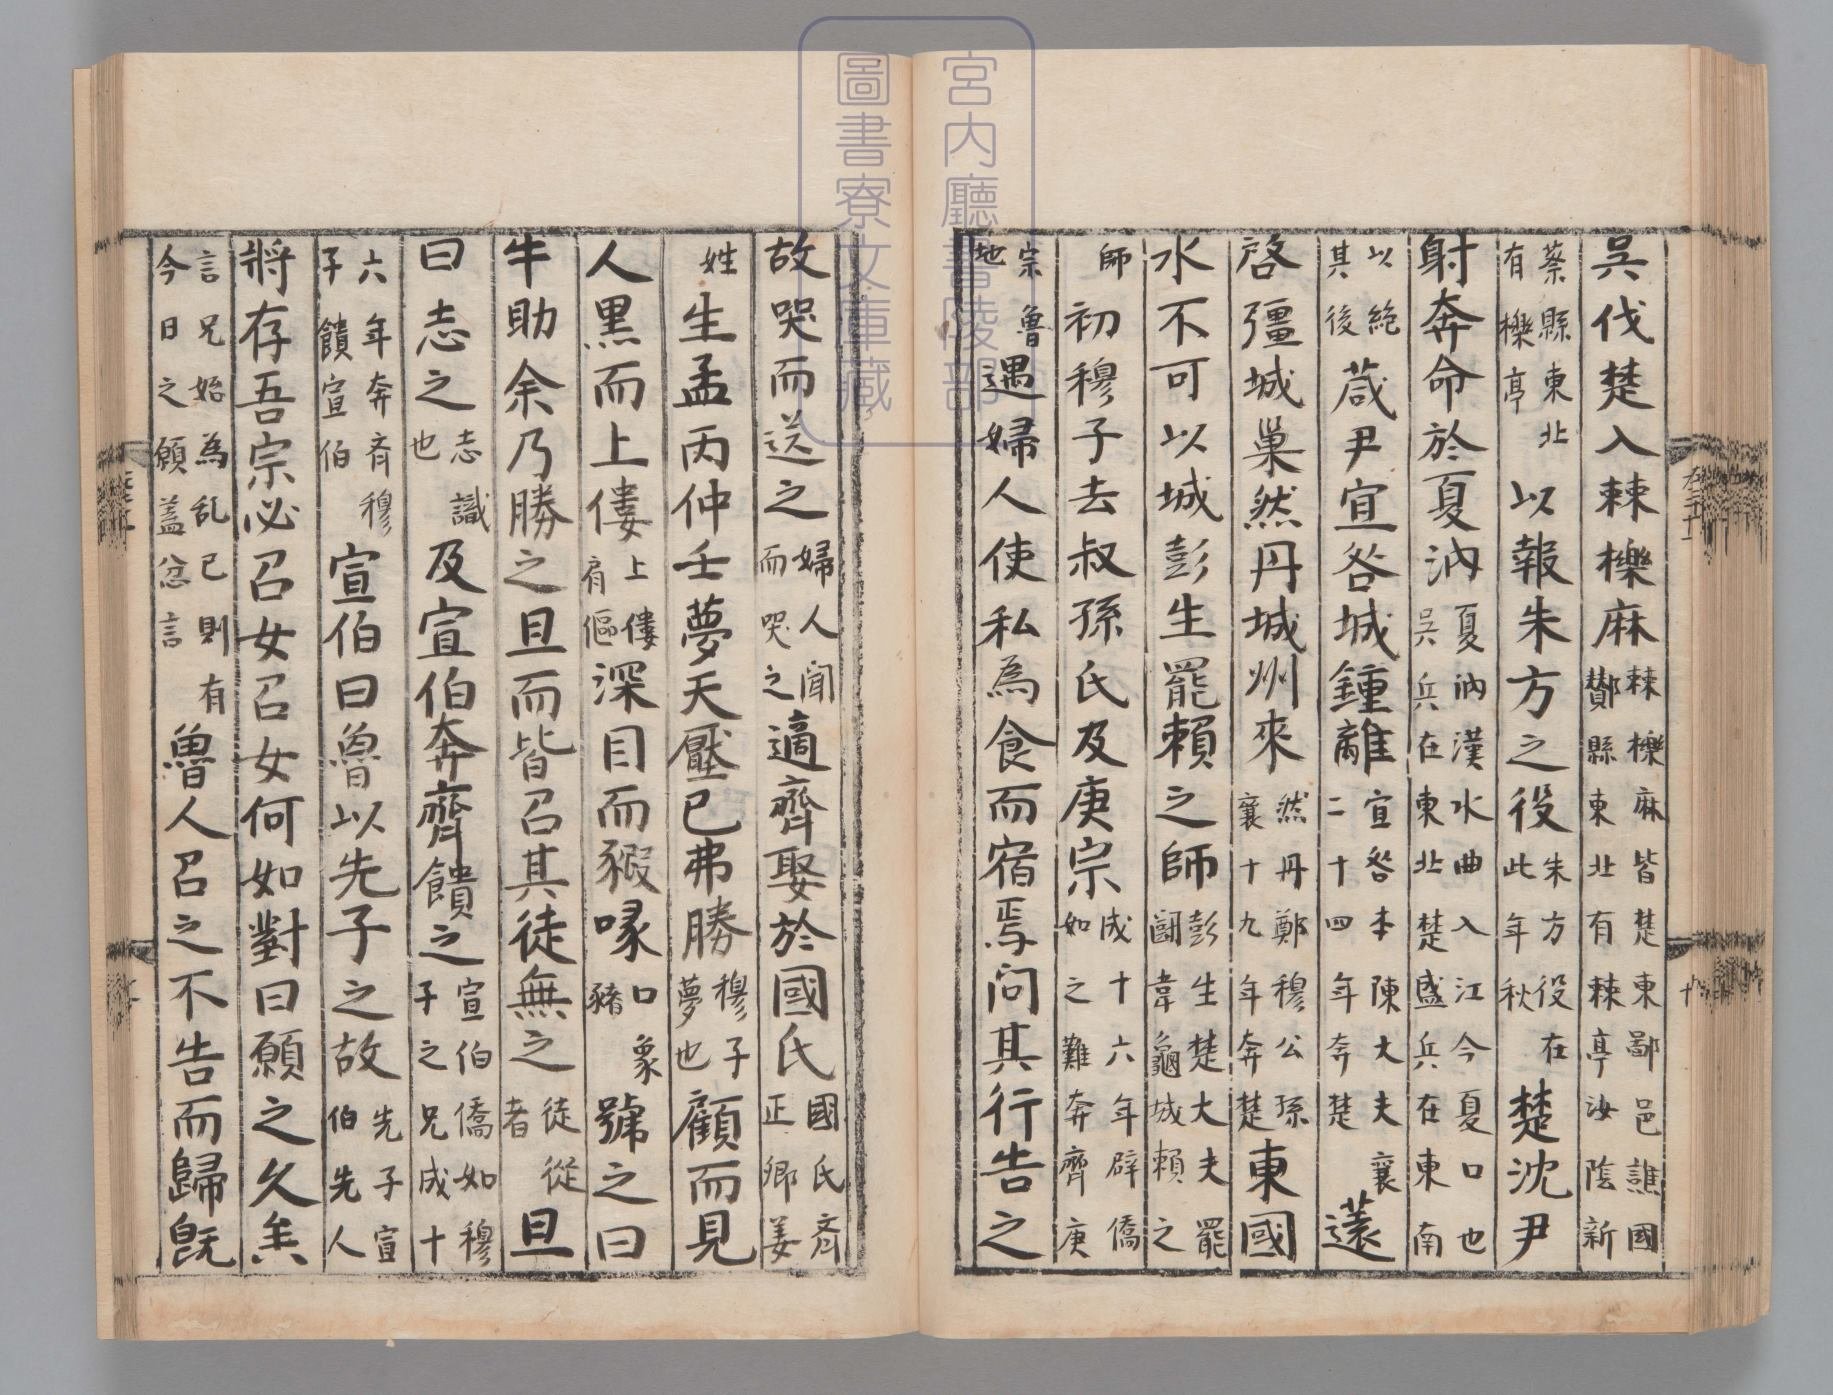 吳伐楚入棘櫟麻棘櫟麻皆楚東鄙邑譙國酇縣東北有棘亭汝陰新
蔡縣東北有櫟亭以報朱方之役朱方役在此年秋楚沈尹
射奔命於夏汭夏汭漢水曲入江今夏口也吳兵在東北楚盛兵在東南
以絶其後葴尹宜咎城鍾離宜咎本陳大夫襄二十四年奔楚薳
啓彊城巢然丹城州來然丹鄭穆公孫襄十九年奔楚東國
水不可以城彭生罷賴之師彭生楚大夫罷鬬韋龜城賴之
師初穆子去叔孫氏及庚宗成十六年辟僑如之難奔齊庚
宗魯地遇婦人使私為食而宿焉問其行告之
故哭而送之婦人聞而哭之適齊娶於國氏國氏齊正卿姜
姓生孟丙仲壬夢天壓已弗勝穆子夢也顧而見
人黑而上僂上僂肩傴深目而豭喙口象豬號之曰
牛助余乃勝之旦而皆召其徒無之徒從者且
曰志之志識也及宣伯奔齊饋之宣伯僑如穆子之兄成十
六年奔齊穆子饋宣伯宣伯曰魯以先子之故先子宣伯先人
將存吾宗必召女召女何如對曰願之久矣
言兄始為乱已則有今日之願盖忿言魯人召之不告而歸旣
宮内廳書陵部
圖書寮文庫藏